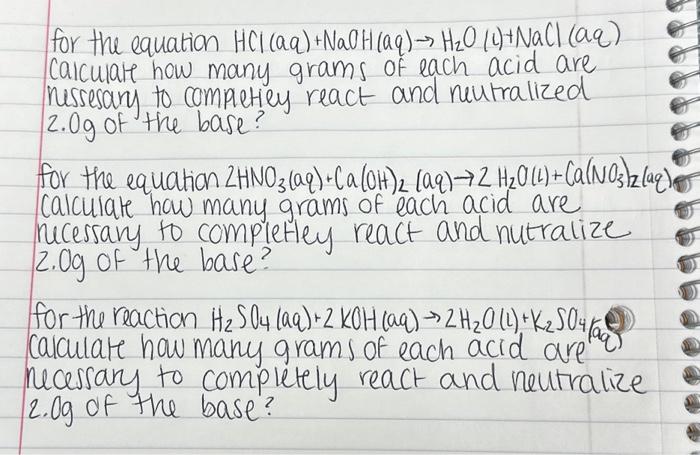 for the equation HCl(aq)+NaOH(aq)→H₂O(l)+NaCl(aq)
Calculate how many grams of each acid are
nessesary to completley react and neutralized
2.0g of the base?
for the equation 2HNO₃(aq)+Ca(OH)₂(aq)→2H₂O(l)+Ca(NO₃)₂(aq)
Calculate how many grams of each acid are
necessary to completley react and nutralize
2.0g of the base?
for the reaction H₂SO₄(aq)+2KOH(aq)→2H₂O(l)+K₂SO₄(aq)
Calculate how many grams of each acid are
necessary to completely react and neutralize
2.0g of the base?